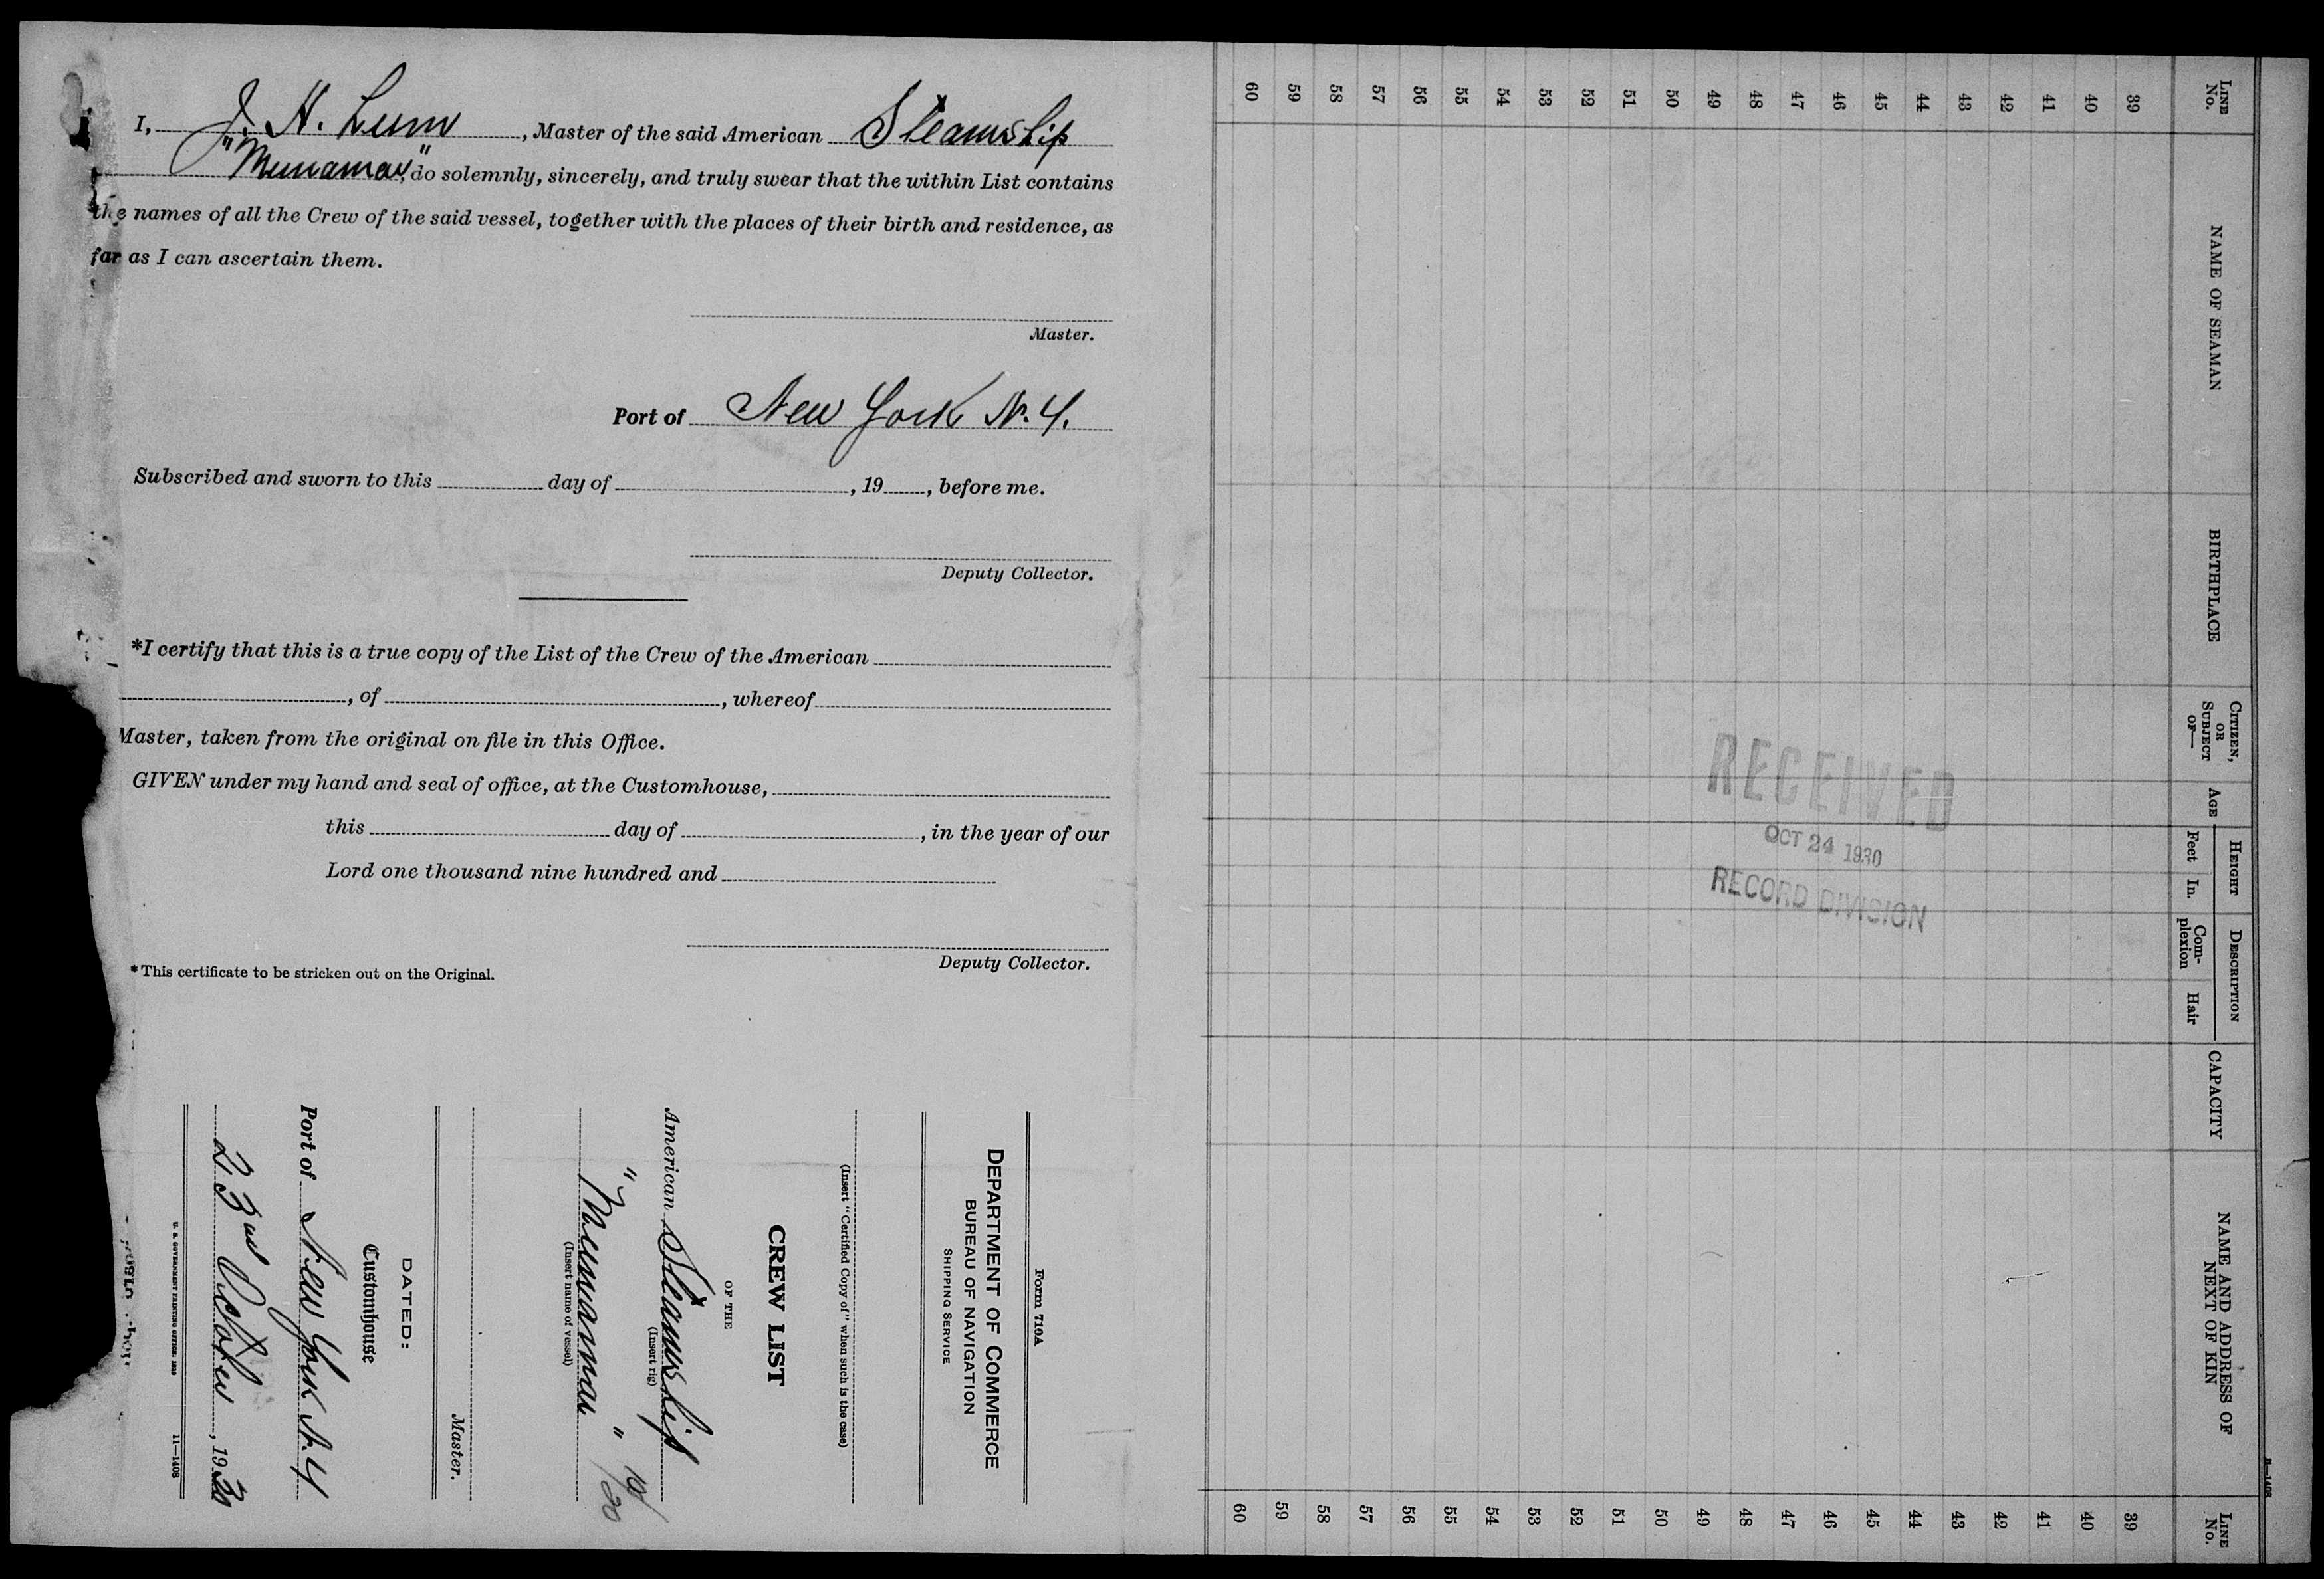 I, J. H. Lum, Master of the said American Steamship
"Munamar", do solemnly, sincerely, and truly swear that the within List contains
the names of all the Crew of the said vessel, together with the places of their birth and residence, as
far as I can ascertain them.
Master.
Port of New York N.Y.
Subscribed and sworn to this day of , 19 , before me.
Deputy Collector.
*I certify that this is a true copy of the List of the Crew of the American
, of , whereof
Master, taken from the original on file in this Office.
GIVEN under my hand and seal of office, at the Customhouse,
this day of , in the year of our
Lord one thousand nine hundred and
Deputy Collector.
*This certificate to be stricken out on the Original.
Form 710A
DEPARTMENT OF COMMERCE
BUREAU OF NAVIGATION
SHIPPING SERVICE
(Insert "Certified Copy of" when such is the case)
CREW LIST
OF THE
American Steamship
(Insert rig)
"Munamar"
(Insert name of vessel)
Master.
DATED:
Customhouse
Port of New York N.Y
23rd October, 1930
U. S. GOVERNMENT PRINTING OFFICE: 11—1408
LINE No.
NAME OF SEAMAN
BIRTHPLACE
CITIZEN, OR SUBJECT OF—
AGE
HEIGHT
Feet In.
DESCRIPTION
Com-
plexion
Hair
CAPACITY
NAME AND ADDRESS OF
NEXT OF KIN
LINE No.
39 39
40 40
41 41
42 42
43 43
44 44
45 45
46 46
47 47
48 48
49 49
50 50
51 51
52 52
53 53
54 54
55 55
56 56
57 57
58 58
59 59
60 60
RECEIVED
OCT 24 1930
RECORD DIVISION